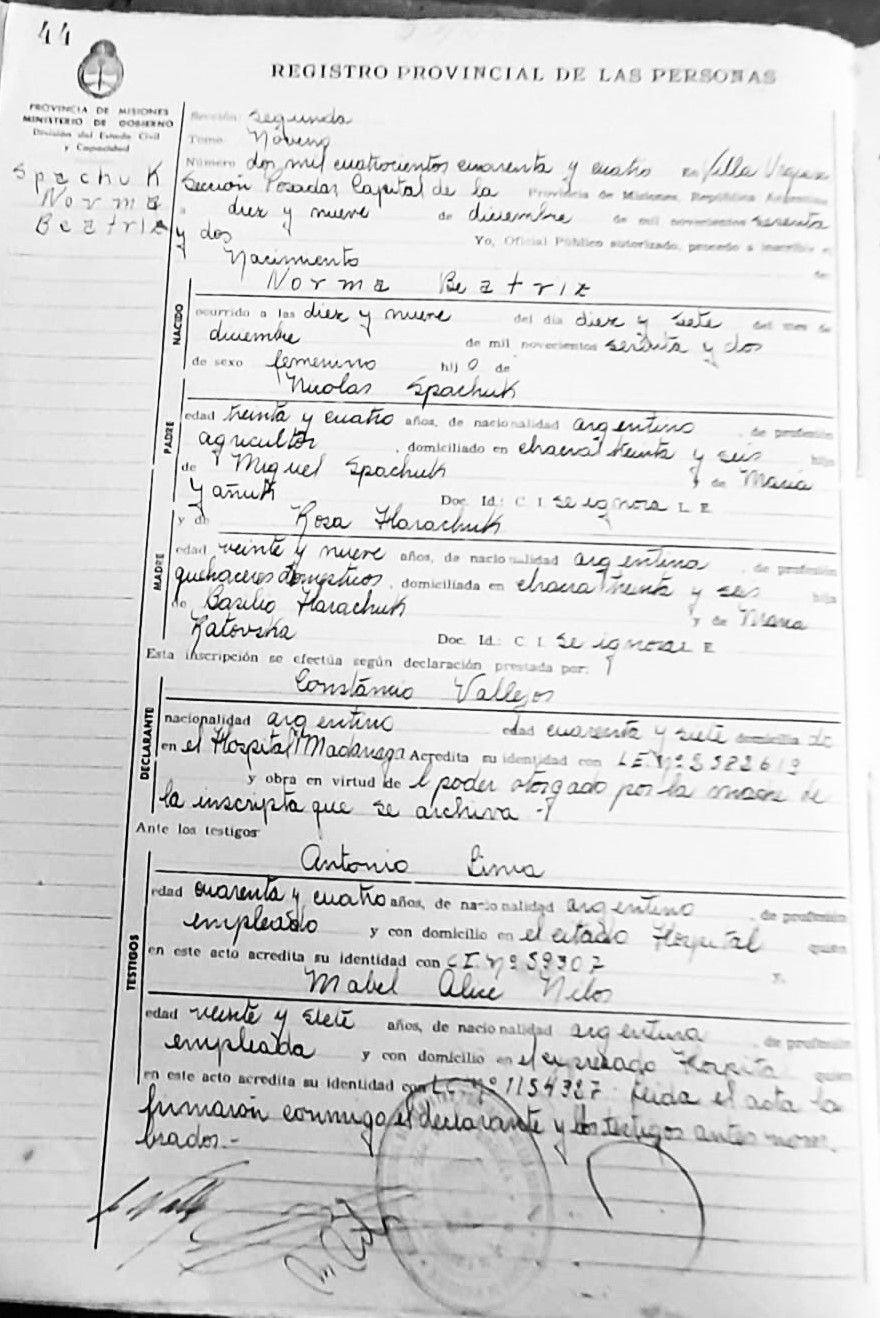 44
REGISTRO PROVINCIAL DE LAS PERSONAS
PROVINCIA DE MISIONES
MINISTERIO DE GOBIERNO
División del Estado Civil
y Capacidad
Spachuk
Norma
Beatriz
Sección Segunda
Tomo Noveno
Número dos mil cuatrocientos cuarenta y cuatro en Villa Urquiza
Sección Posadas Capital de la Provincia de Misiones, República Argentina
a diez y nueve de diciembre de mil novecientos sesenta
y dos Yo, Oficial Público autorizado, procedo a inscribir el
Nacimiento de
Norma Beatriz
NACIDO
ocurrido a las diez y nueve del día diez y siete del mes de
diciembre de mil novecientos sesenta y dos
de sexo femenino hij o de
Nicolas Spachuk
PADRE
edad treinta y cuatro años, de nacionalidad argentino , de profesión
agricultor , domiciliado en chacra treinta y seis hijo
de Miguel Spachuk y de Maria
Yañuk Doc. Id.: C. I. se ignora L. E.
y de Rosa Harachuk
MADRE
edad veinte y nueve años, de nacionalidad argentina , de profesión
quehaceres domesticos , domiciliada en chacra treinta y seis hija
de Basilio Harachuk y de Maria
Katovska Doc. Id.: C. I. se ignora E.
Esta inscripción se efectúa según declaración prestada por:
Constancio Vallejos
DECLARANTE
nacionalidad argentino edad cuarenta y siete domicilia do
en el Hospital Madariaga Acredita su identidad con L.E. Nº
y obra en virtud de l poder otorgado por la madre de
la inscripta que se archiva.-
Ante los testigos
Antonio Lima
TESTIGOS
edad cuarenta y cuatro años, de nacionalidad argentino , de profesión
empleado y con domicilio en el citado Hospital quien
en este acto acredita su identidad con C.I. Nº 59307 y,
Mabel Alice
edad veinte y siete años, de nacionalidad argentina , de profesión
empleada y con domicilio en el expresado Hospital quien
en este acto acredita su identidad con L.C. Nº 1154327 leida el acta la
firmaron conmigo el declarante y los testigos antes nom-
brados.-